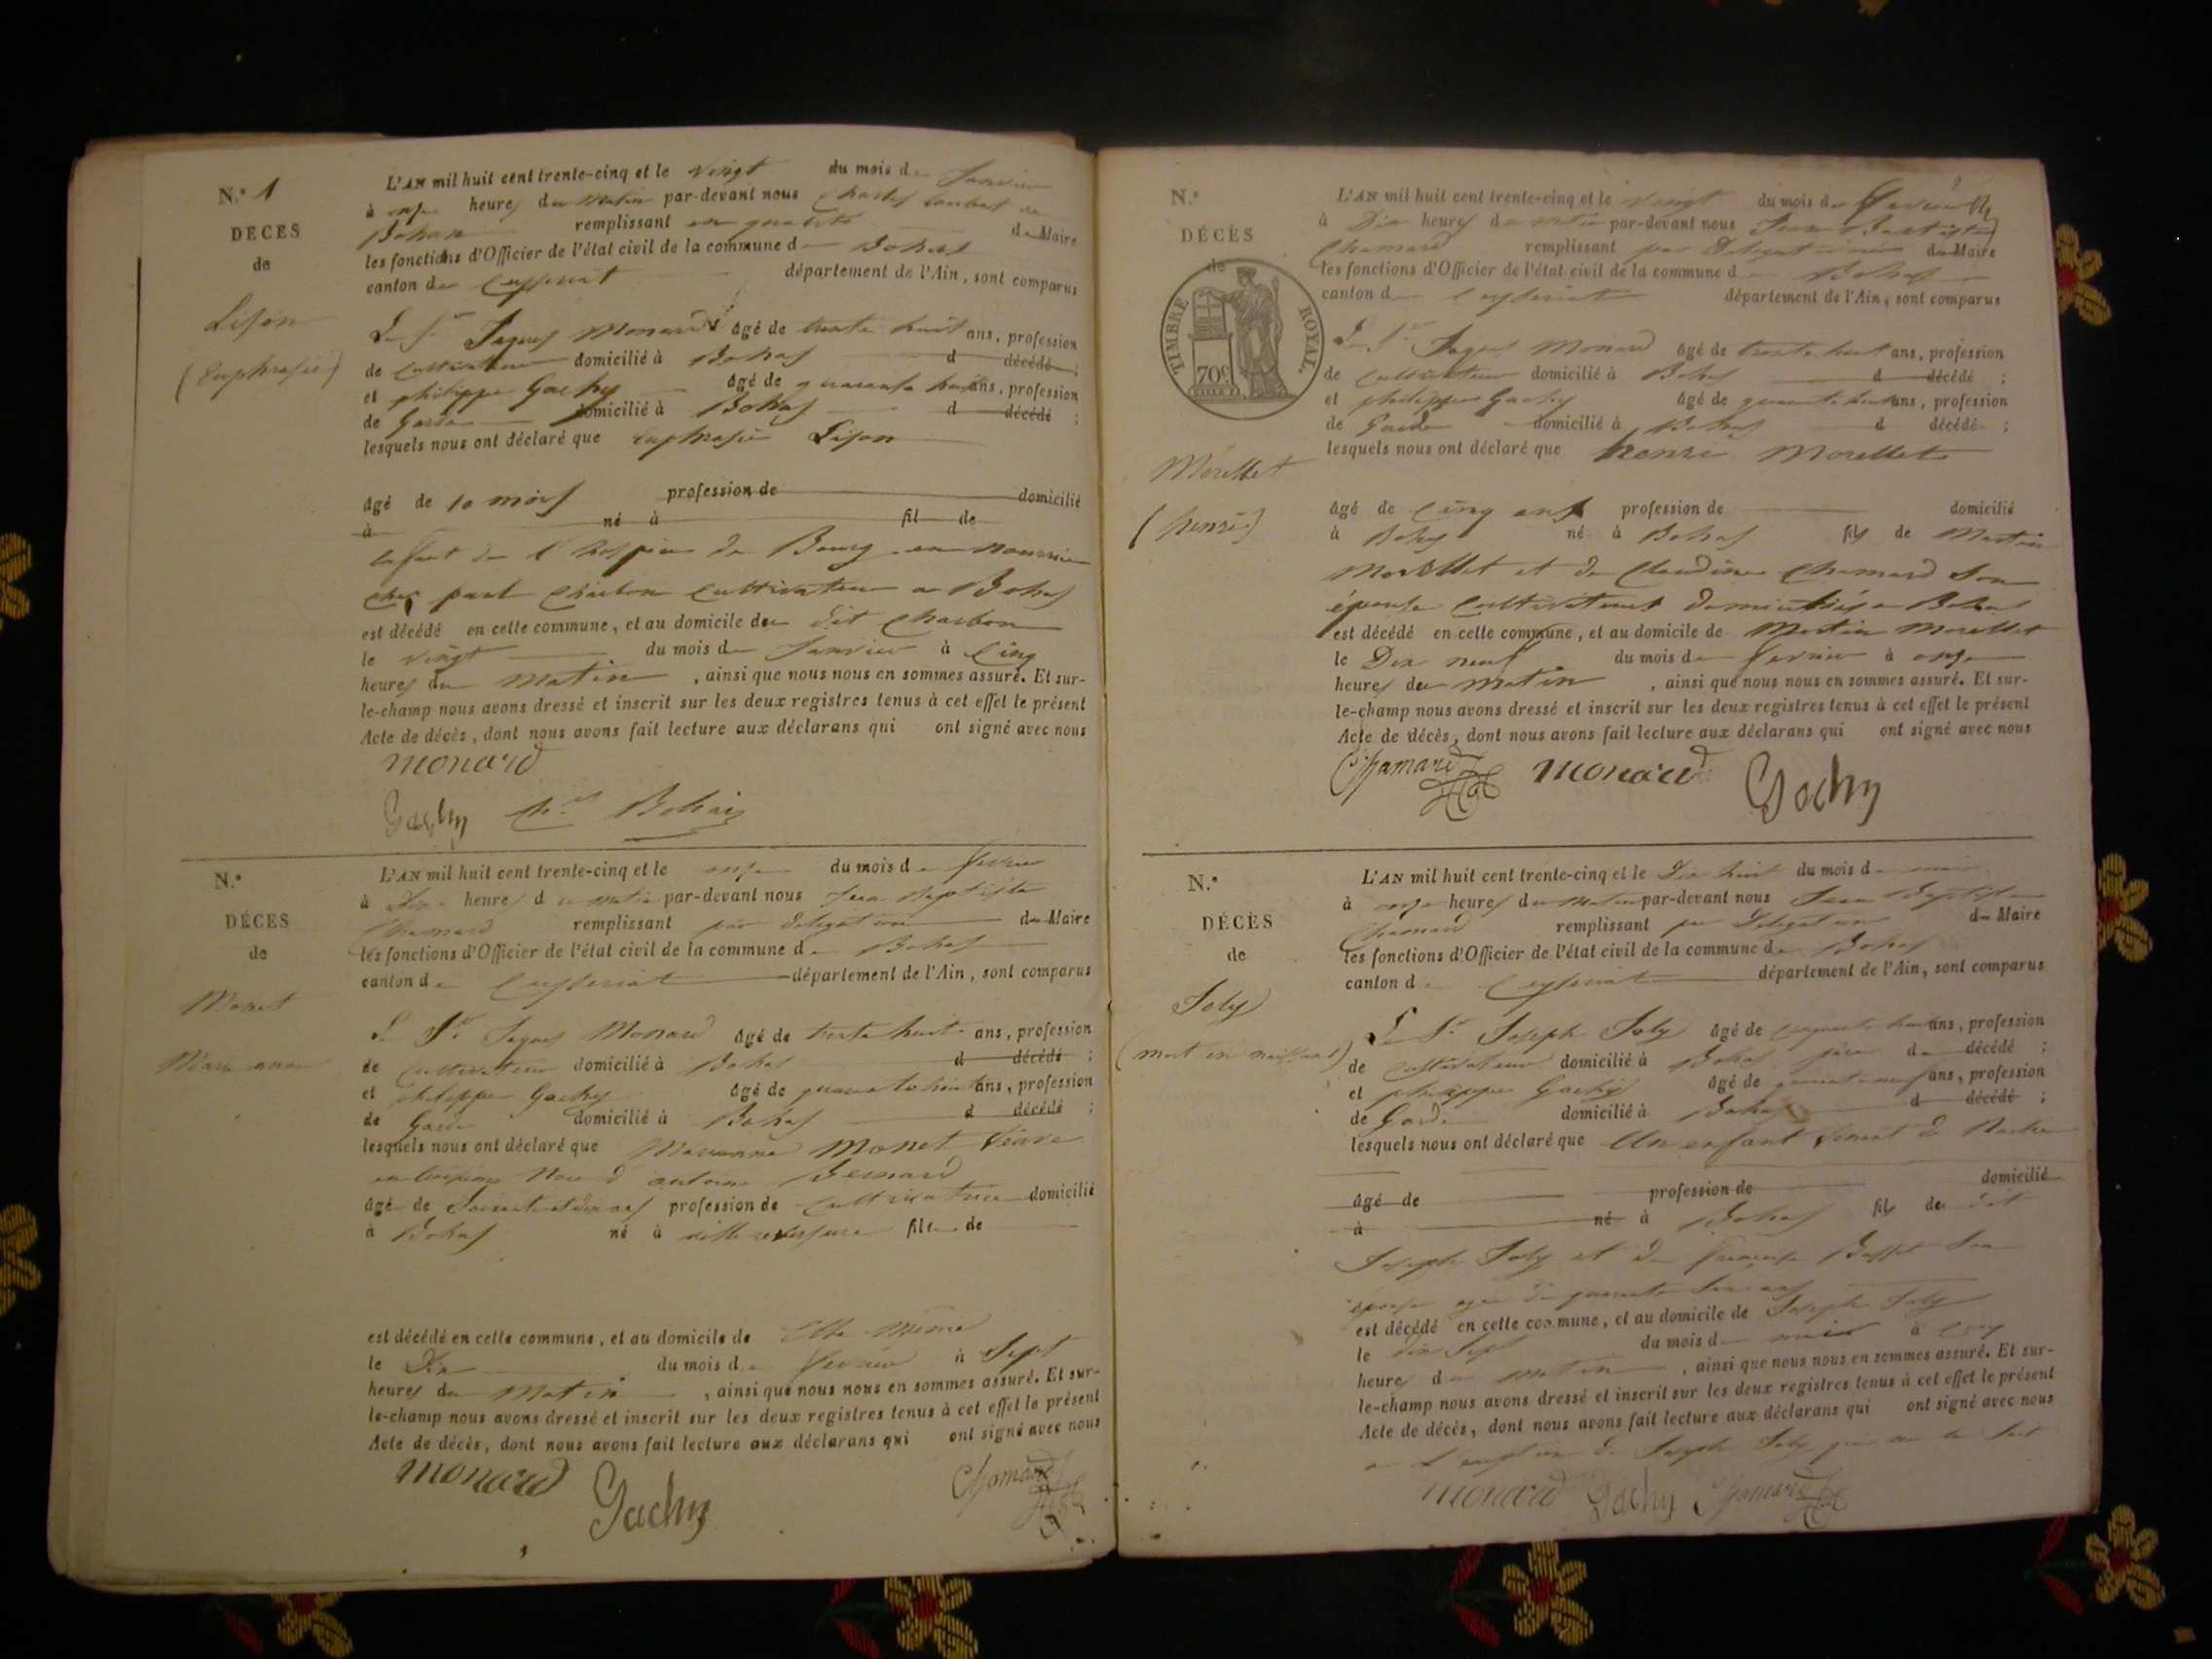 N.° 1
DÉCES
de
Lison
(Euphrasie)
L'AN mil huit cent trente-cinq et le vingt du mois de Janvier
à onze heures du matin par-devant nous Charles
Bohan remplissant en qualité de Maire
les fonctions d'Officier de l'état civil de la commune de Bohas
canton de Ceyzeriat département de l'Ain, sont comparus
Le Sr Jaques Monard âgé de trente huit ans, profession
de cultivateur domicilié à Bohas d décédé ;
et philippe Gachy âgé de quarante huit ans, profession
de Garde domicilié à Bohas d décédé ;
lesquels nous ont déclaré que Euphrasie Lison
âgé de 10 mois profession de domicilié
à né à fil de
Enfant de l'hospice de Bourg en nourrice
chez paul Charbon cultivateur a Bohas
est décédé en cette commune, et au domicile du dit Charbon
le vingt du mois de Janvier à Cinq
heures du matin, ainsi que nous nous en sommes assuré. Et sur-
le-champ nous avons dressé et inscrit sur les deux registres tenus à cet effet le présent
Acte de décès, dont nous avons fait lecture aux déclarans qui ont signé avec nous
monard
Gachy Bohan
N.°
DÉCES
de
Monet
L'AN mil huit cent trente-cinq et le onze du mois de fevrier
à Dix heures du matin par-devant nous Jean Baptiste
Chamard remplissant par délégation du Maire
les fonctions d'Officier de l'état civil de la commune de Bohas
canton de Ceyzeriat département de l'Ain, sont comparus
Le Sr Jaques Monard âgé de trente huit ans, profession
de cultivateur domicilié à Bohas d décédé ;
et philippe Gachy âgé de quarante huit ans, profession
de Garde domicilié à Bohas d décédé ;
lesquels nous ont déclaré que Marianne Monet veuve
antoine Bernard
âgé de Soixante et dix ans profession de cultivatrice domicilié
à Bohas né à fille de
est décédé en cette commune, et au domicile de Elle même
le Dix du mois de fevrier à Sept
heures du Matin, ainsi que nous nous en sommes assuré. Et sur-
le-champ nous avons dressé et inscrit sur les deux registres tenus à cet effet le présent
Acte de décès, dont nous avons fait lecture aux déclarans qui ont signé avec nous
monard Gachy Chamard
N.°
DÉCÈS
de
TIMBRE ROYAL.
70c
Morellet
(henri)
L'AN mil huit cent trente-cinq et le vingt du mois de fevrier
à Dix heures du matin par-devant nous Jean Baptiste
Chamard remplissant par délégation du Maire
les fonctions d'Officier de l'état civil de la commune de Bohas
canton de Ceyzeriat département de l'Ain, sont comparus
Le Sr Jaques Monard âgé de trente huit ans, profession
de cultivateur domicilié à Bohas d décédé ;
et philippe Gachy âgé de quarante huit ans, profession
de Garde domicilié à Bohas d décédé ;
lesquels nous ont déclaré que henri Morellet
âgé de cinq ans profession de domicilié
à Bohas né à Bohas fils de Martin
Morellet et de Claudine Chamard Son
épouse cultivateurs domiciliés a Bohas
est décédé en cette commune, et au domicile de Martin Morellet
le Dix neuf du mois de fevrier à onze
heures du matin, ainsi que nous nous en sommes assuré. Et sur-
le-champ nous avons dressé et inscrit sur les deux registres tenus à cet effet le présent
Acte de décès, dont nous avons fait lecture aux déclarans qui ont signé avec nous
Chamard monard Gachy
N.°
DÉCÈS
de
Joly
(mort en naissant)
L'AN mil huit cent trente-cinq et le Dix huit du mois de
à onze heures du matin par-devant nous Jean Baptiste
Chamard remplissant par Délégation du Maire
les fonctions d'Officier de l'état civil de la commune de Bohas
canton de Ceyzeriat département de l'Ain, sont comparus
Le Sr Joseph Joly âgé de ans, profession
de cultivateur domicilié à Bohas père du décédé ;
et philippe Gachy âgé de ans, profession
de Garde domicilié à Bohas d décédé ;
lesquels nous ont déclaré que Un enfant venant de Naitre
âgé de profession de domicilié
à né à Bohas fils de dit
Joseph Joly et de francoise Son
épouse agée de quarante ans
est décédé en cette commune, et au domicile de Joseph Joly
le dix Sept du mois de à cinq
heures du matin, ainsi que nous nous en sommes assuré. Et sur-
le-champ nous avons dressé et inscrit sur les deux registres tenus à cet effet le présent
Acte de décès, dont nous avons fait lecture aux déclarans qui ont signé avec nous
de Joseph Joly
monard Gachy Chamard